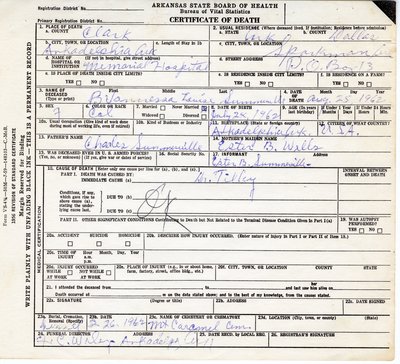 ARKANSAS STATE BOARD OF HEALTH
Bureau of Vital Statistics
Registration District No.
CERTIFICATE OF DEATH
Primary Registration District No.
1. PLACE OF DEATH
a. COUNTY Clark
2. USUAL RESIDENCE (Where deceased lived. If institution: Residence before admission)
a. STATE Ark b. COUNTY Dallas
b. CITY, TOWN, OR LOCATION Arkadelphia Ark
c. Length of Stay in 1b
c. CITY, TOWN, OR LOCATION Sparkman
d. NAME OF HOSPITAL OR INSTITUTION (If not in hospital, give street address) Memorial Hospital
d. STREET ADDRESS P.O. Box
e. IS PLACE OF DEATH INSIDE CITY LIMITS? YES NO
e. IS RESIDENCE INSIDE CITY LIMITS? YES NO
f. IS RESIDENCE ON A FARM? YES NO
3. NAME OF DECEASED (Type or print) First Middle Last
4. DATE OF DEATH Month Day Year Aug 25 1962
5. SEX
6. Col
7. Married Never Married
Widowed Divorced
8. July 24, 1962
11. BIRTHPLACE Arkadelphia Ark
12. CITIZEN OF WHAT COUNTRY? U.S.A.
13. FATHER'S NAME Charles Summerville
14. MOTHER'S MAIDEN NAME Ester B. Wells
15. WAS DECEASED EVER IN U.S. ARMED FORCES?
(Yes, no, or unknown) (If yes, give war or dates of service)
16. Social Security No.
17. Informant Ester B. Summerville
18. CAUSE OF DEATH [Enter only one cause per line for (a), (b), and (c).]
PART I. DEATH WAS CAUSED BY:
IMMEDIATE CAUSE (a) Dr. Tilley
INTERVAL BETWEEN ONSET AND DEATH
Conditions, if any, which gave rise to above cause (a), stating the underlying cause last.
DUE TO (b)
DUE TO (c)
PART II. OTHER SIGNIFICANT CONDITIONS Contributing to Death but Not Related to the Terminal Disease Condition Given in Part I(a)
19. WAS AUTOPSY PERFORMED? YES NO
20a. ACCIDENT SUICIDE HOMICIDE
20b. DESCRIBE HOW INJURY OCCURRED. (Enter nature of injury in Part I or Part II of Item 18.)
20c. TIME OF INJURY Hour Month, Day, Year a.m. p.m.
20d. INJURY OCCURRED WHILE AT WORK NOT WHILE AT WORK
20e. PLACE OF INJURY (e.g., in or about home, farm, factory, street, office bldg., etc.)
20f. CITY, TOWN, OR LOCATION COUNTY STATE
21. I attended the deceased from to and last saw him alive on
Death occurred at m on the date stated above; and to the best of my knowledge, from the causes stated.
22a. SIGNATURE (Degree or title)
22b. ADDRESS
22c. DATE SIGNED
23a. Burial, Cremation, Removal (Specify)
23b. DATE 8-26-1962
23c. NAME OF CEMETERY OR CREMATORY Mt Caramel Cem.
23d. LOCATION (City, town, or county) (State)
24. FUNERAL DIRECTOR ADDRESS
25. DATE RECD. BY LOCAL REG.
26. REGISTRAR'S SIGNATURE
MEDICAL CERTIFICATION
WRITE PLAINLY WITH UNFADING BLACK INK—THIS IS A PERMANENT RECORD
Margin Reserved for Binding